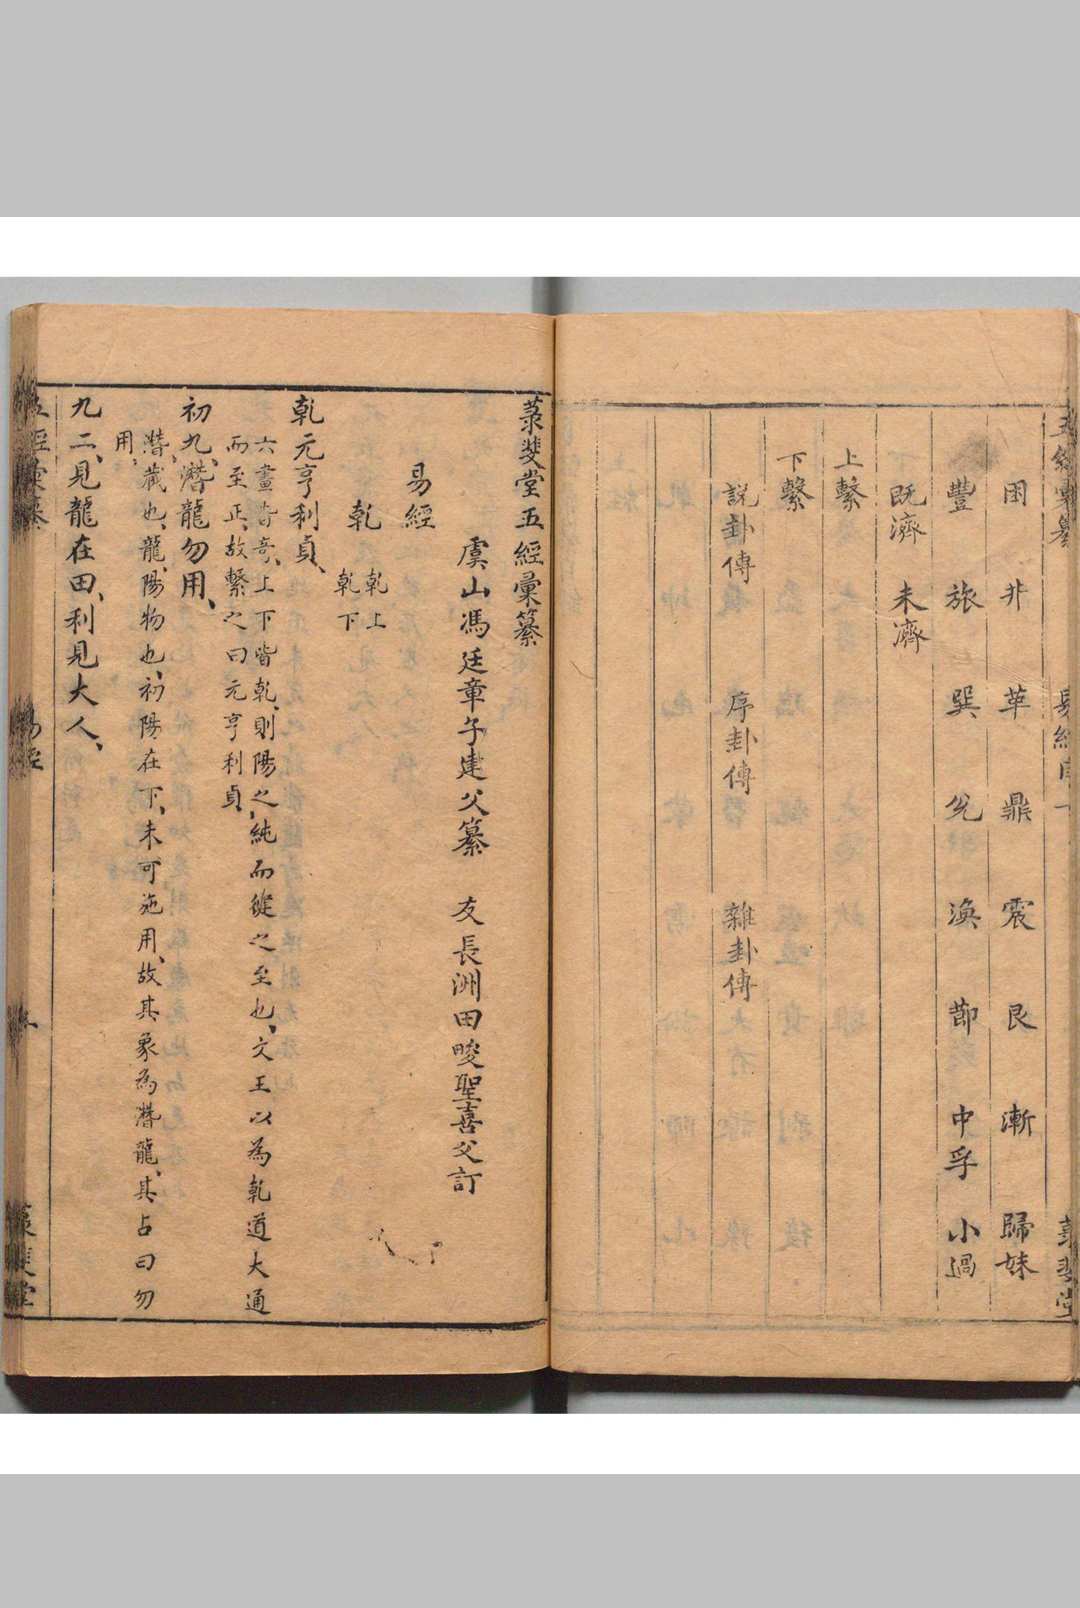 五經彙纂 易經目 菉斐堂
困 井 革 鼎 震 艮 漸 歸妹
豐 旅 巽 兌 渙 節 中孚 小過
既濟 未濟
上繫
下繫
說卦傳 序卦傳 雜卦傳
菉斐堂五經彙纂
虞山馮廷章子建父纂 友長洲田畯聖喜父訂
易經
乾 乾上
乾下
乾元亨利貞、
六畫皆奇、上下皆乾、則陽之純而健之至也、文王以為乾道大通
而至正、故繫之曰元亨利貞、
初九、潛龍勿用、
潛、藏也、龍、陽物也、初陽在下、未可施用、故其象為潛龍、其占曰勿
用、
九二、見龍在田、利見大人、
五經彙纂 易經 菉斐堂